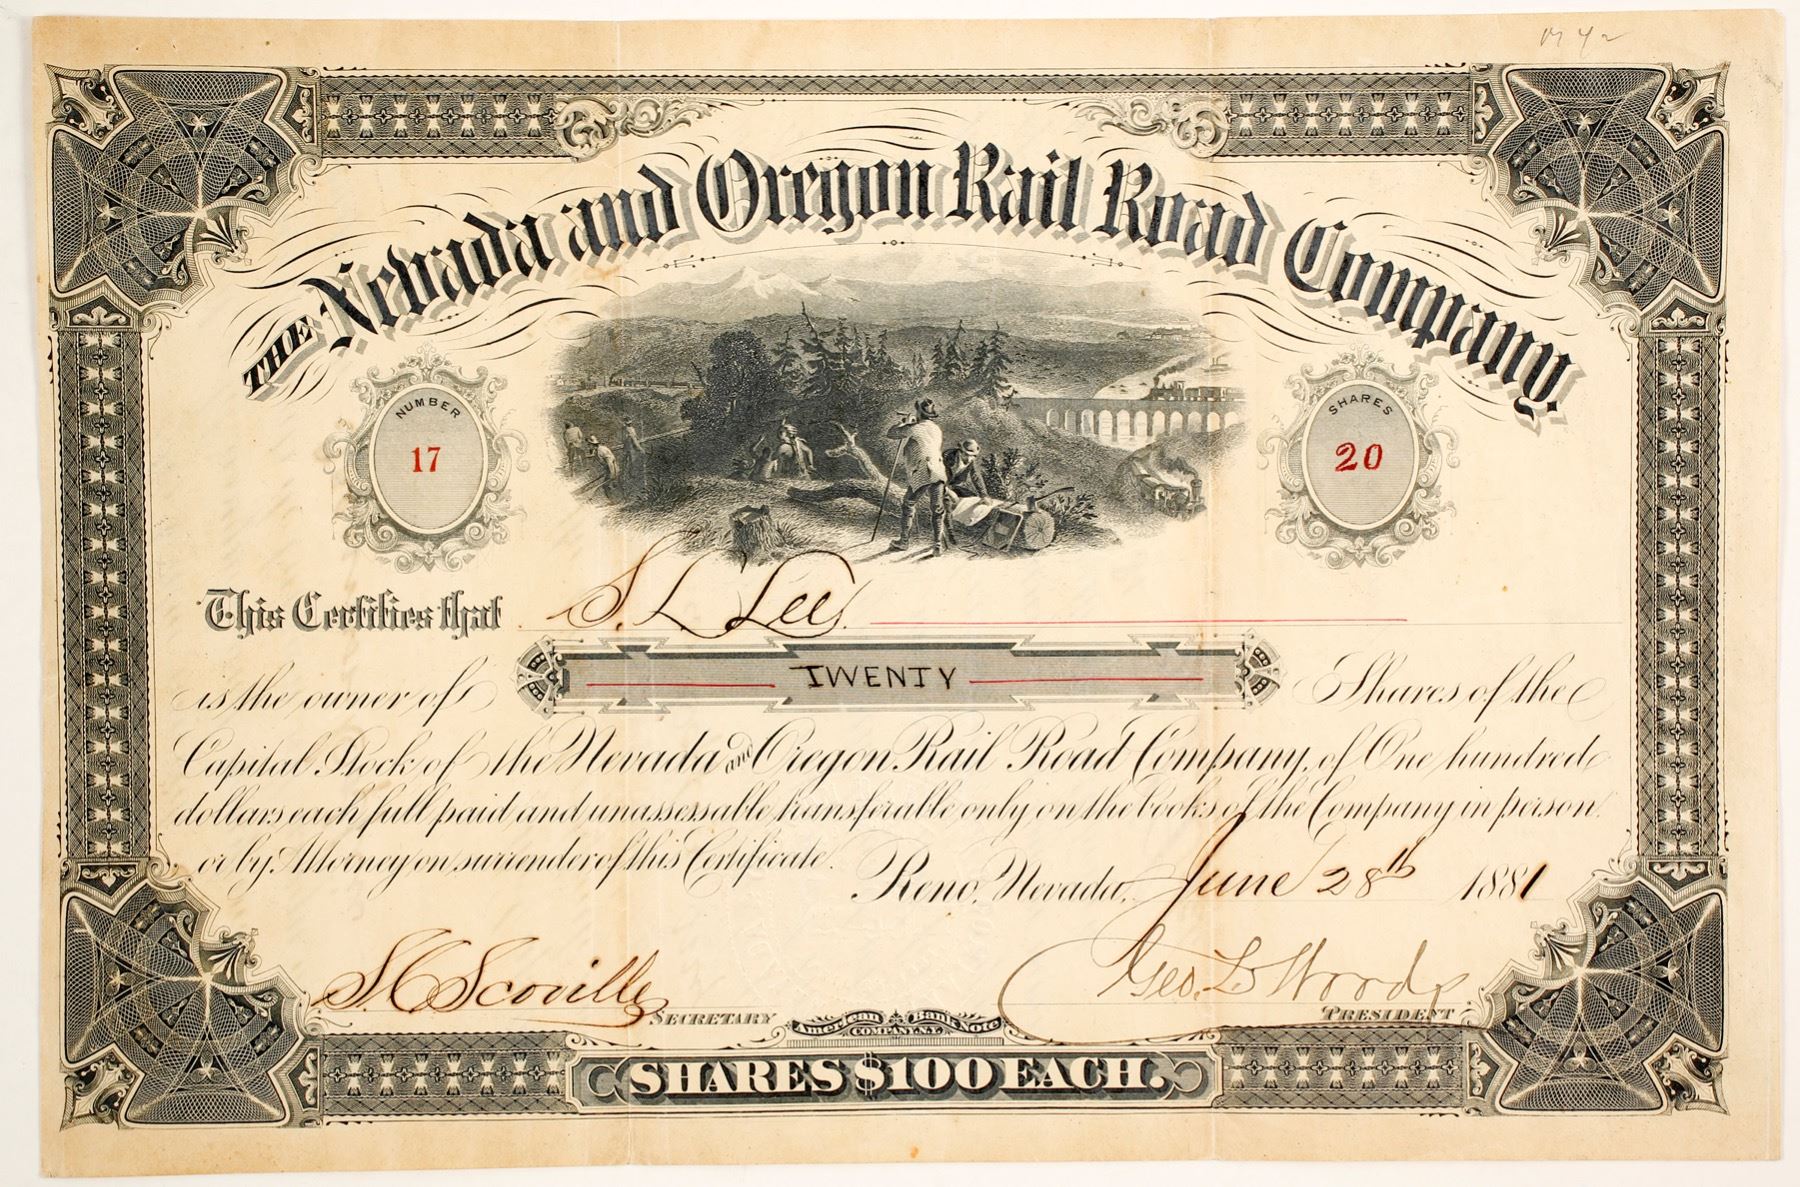 THE Nevada and Oregon Rail Road Company.
NUMBER
17
SHARES
20
This Certifies that S. L. Lee.
is the owner of TWENTY Shares of the
Capital Stock of the Nevada and Oregon Rail Road Company, of One hundred
dollars each full paid and unassessable transferable only on the books of the Company in person
or by Attorney on surrender of this Certificate.
Reno, Nevada, June 28th 1881
S. C. Scoville
SECRETARY
Geo. L. Woods
PRESIDENT
American Bank Note
COMPANY, N.Y.
SHARES $100 EACH.